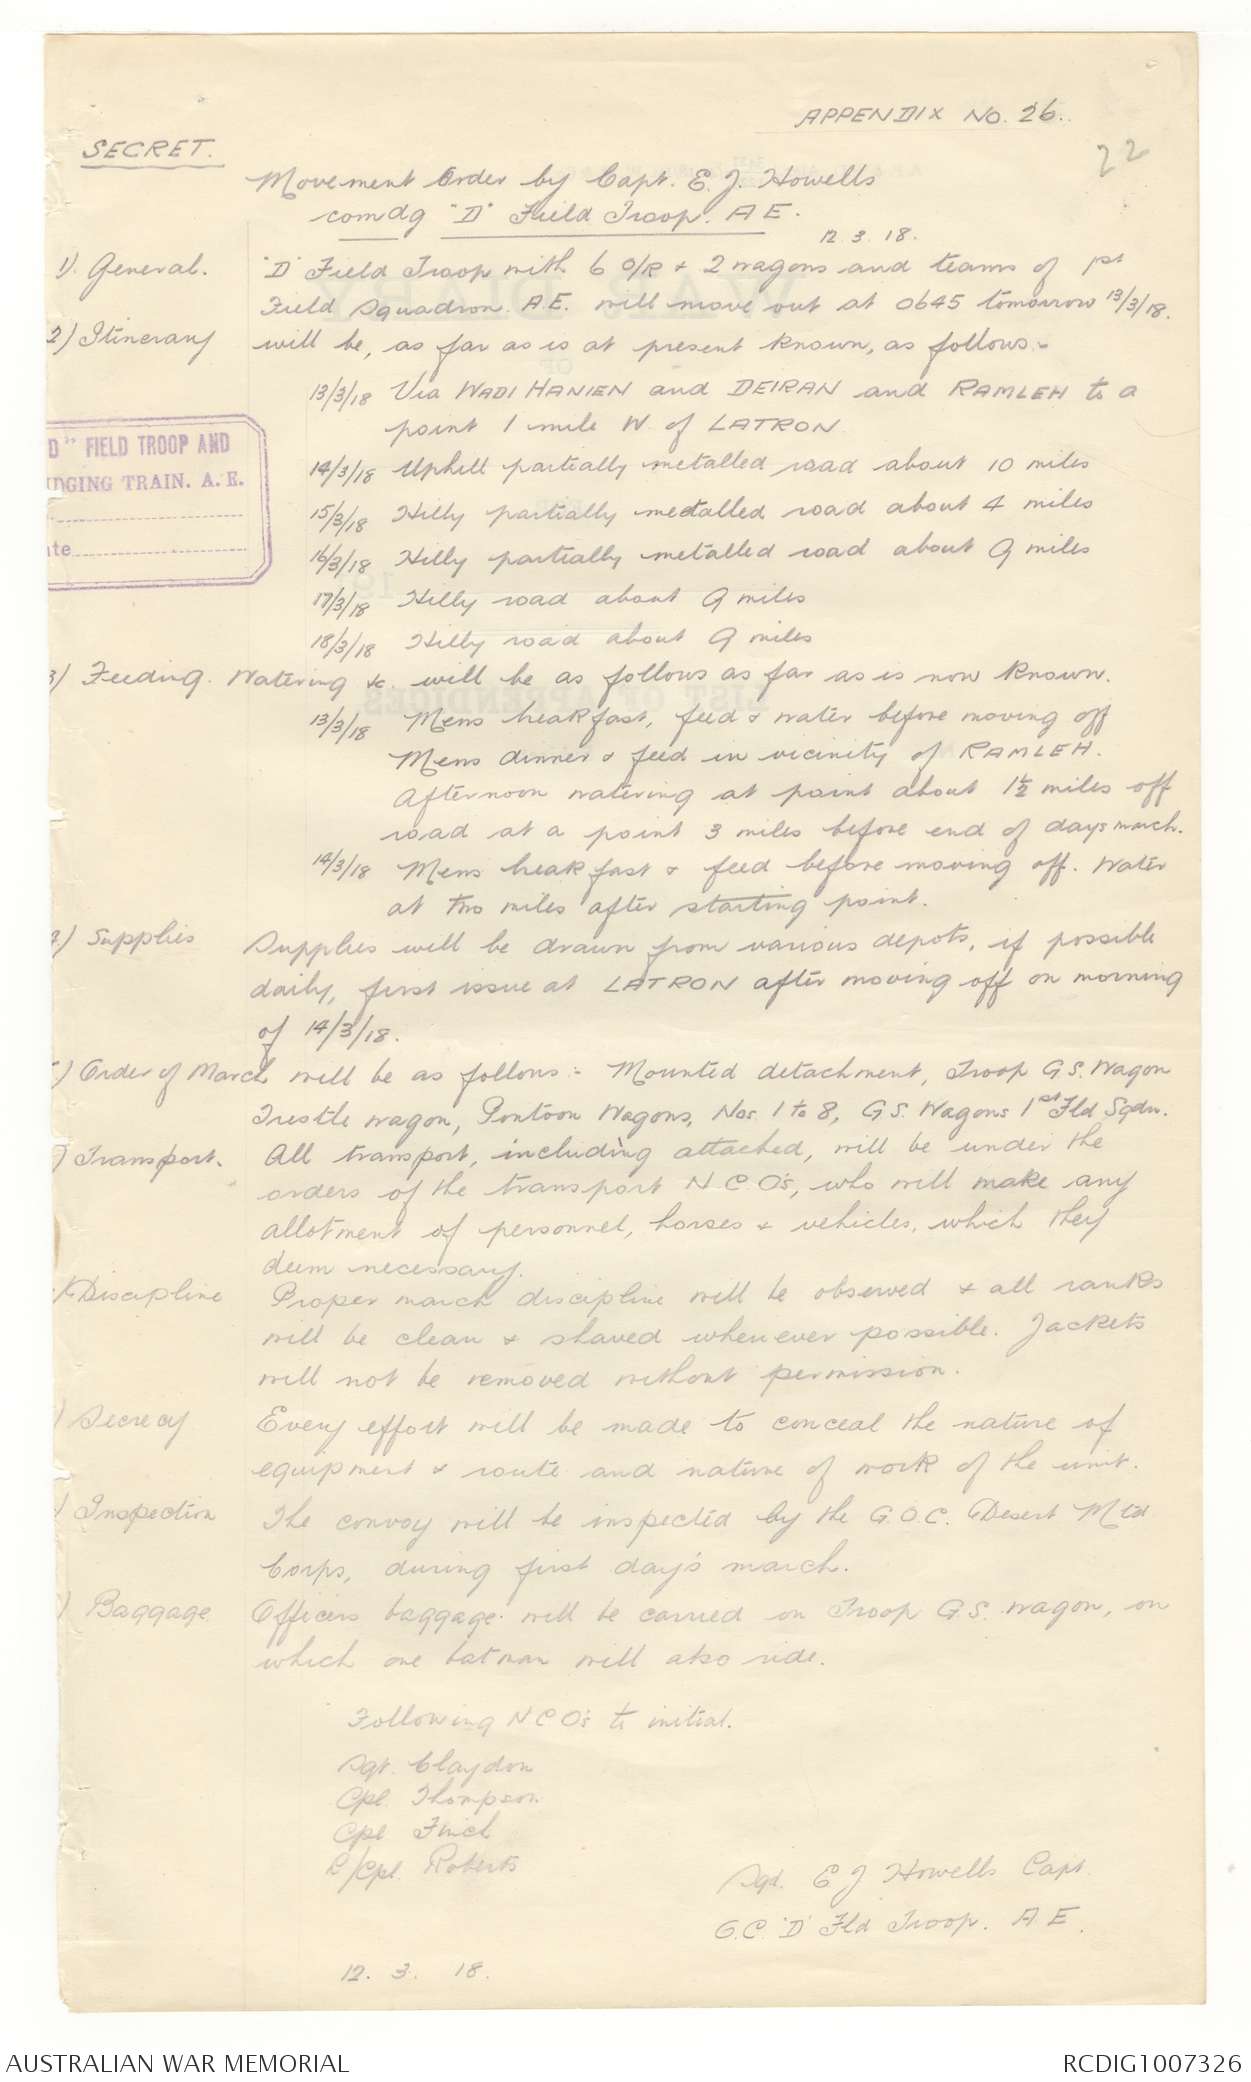 APPENDIX No. 26.
22
SECRET.
Movement Order by Capt. E. J. Howells
comdg "D" Field Troop. A E.
12. 3. 18.
1). General. "D" Field Troop with 6 O/R & 2 wagons and teams of 1st
Field Squadron. A.E. will move out at 0645 tomorrow 13/3/18.
2) Itinerary will be, as far as is at present known, as follows:-
13/3/18 Via WADI HANIEN and DEIRAN and RAMLEH to a
point 1 mile W. of LATRON.
14/3/18 Uphill partially metalled road about 10 miles
15/3/18 Hilly partially metalled road about 4 miles
16/3/18 Hilly partially metalled road about 9 miles
17/3/18 Hilly road about 9 miles
18/3/18 Hilly road about 9 miles
D" FIELD TROOP AND
DGING TRAIN. A. E.
te
3) Feeding. Watering &c. will be as follows as far as is now known.
13/3/18 Mens breakfast, feed & water before moving off
Mens dinner & feed in vicinity of RAMLEH.
Afternoon watering at point about 1½ miles off
road at a point 3 miles before end of days march.
14/3/18 Mens breakfast & feed before moving off. Water
at two miles after starting point.
4.) Supplies Supplies will be drawn from various depots, if possible
daily, first issue at LATRON after moving off on morning
of 14/3/18.
) Order of March will be as follows:- Mounted detachment, Troop G.S. Wagon
Trestle wagon, Pontoon Wagons, Nos. 1 to 8, G.S. Wagons 1st Fld Sqdn.
) Transport. All transport, including attached, will be under the
orders of the transport N.C.O's, who will make any
allotment of personnel, horses & vehicles, which they
deem necessary.
) Discipline Proper march discipline will be observed & all ranks
will be clean & shaved whenever possible. Jackets
will not be removed without permission.
) Secrecy Every effort will be made to conceal the nature of
equipment & route and nature of work of the unit.
) Inspection The convoy will be inspected by the G.O.C. Desert Mtd
Corps, during first day's march.
) Baggage Officers baggage will be carried on Troop G.S. wagon, on
which one batman will also ride.
Following N C O's to initial.
Sgt. Claydon
Cpl. Thompson
Cpl Finch
L/Cpl. Roberts
Sgd. E J Howells Capt.
O.C. "D" Fld Troop. A E.
12. 3. 18.
AUSTRALIAN WAR MEMORIAL
RCDIG1007326